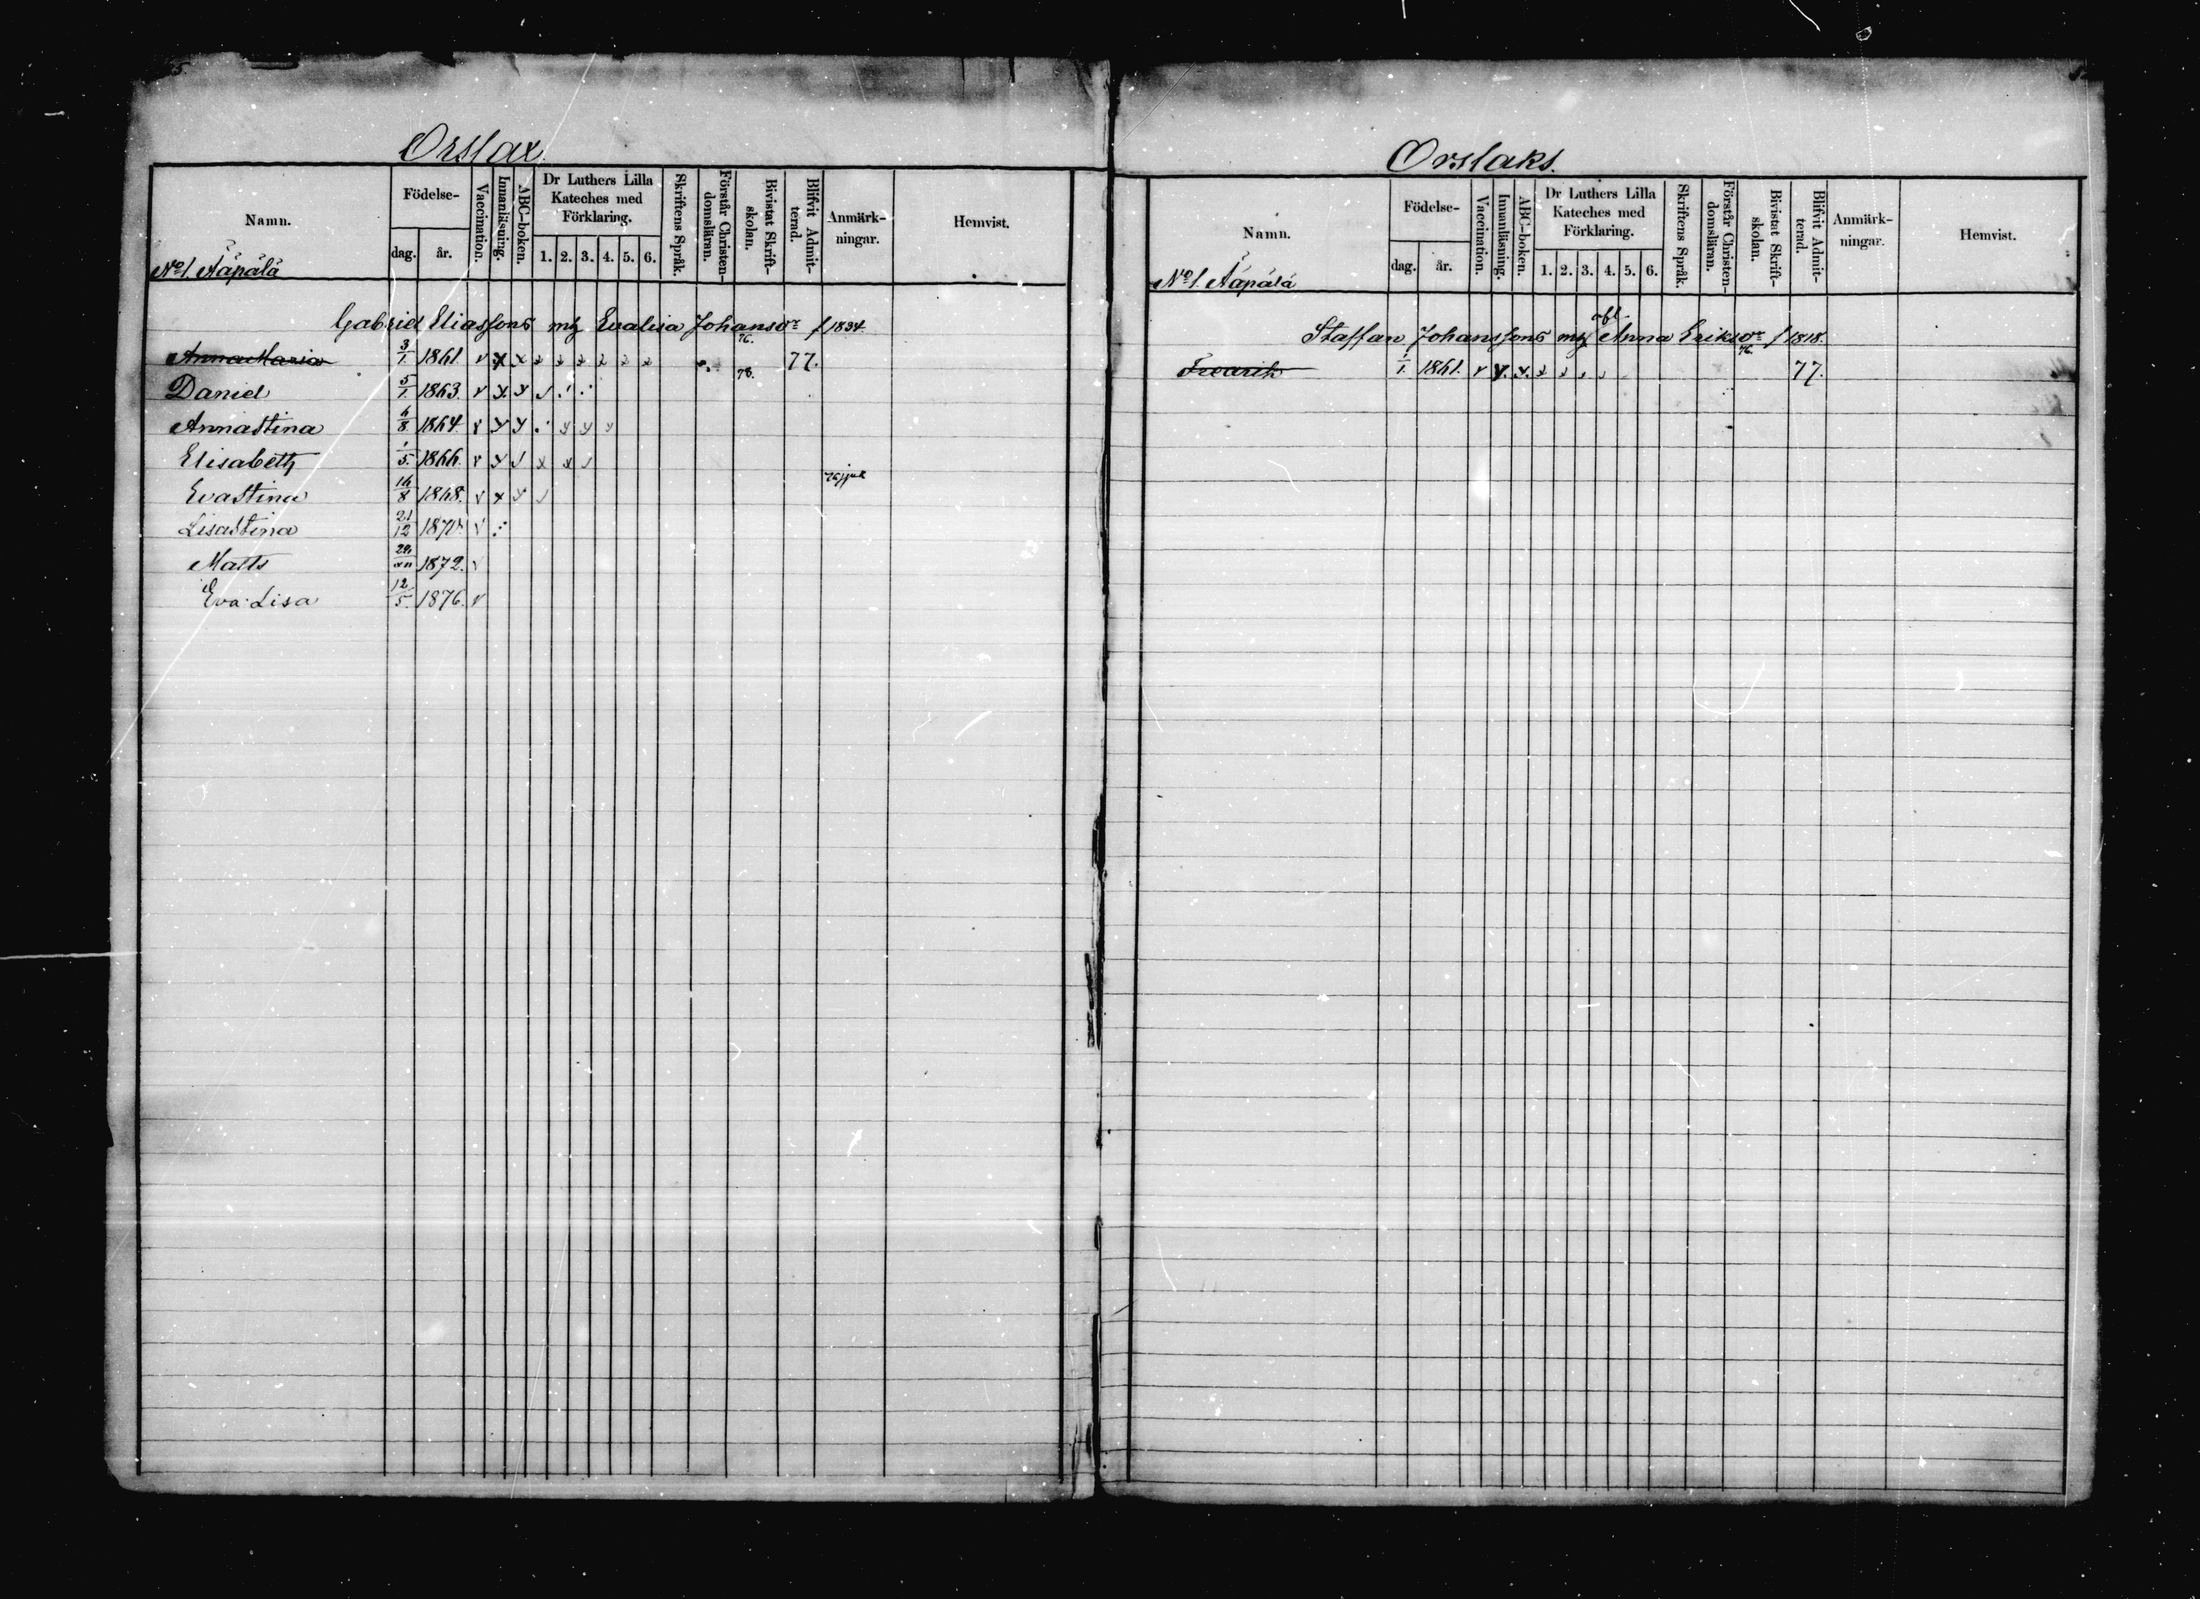 Orslax.
Namn. Födelse- dag. år. Vaccination. Innanläsning. ABC-boken. Dr Luthers Lilla Kateches med Förklaring. 1. 2. 3. 4. 5. 6. Skriftens Språk. Förstår Christen-domsläran. Bivistat Skrift-skolan. Blifvit Admit-terad. Anmärk-ningar. Hemvist.
No 1. Ääpälä
Gabriel Eliassons m Evalisa Johansdr f 1834
Anna Maria 3/1. 1861 v x x 76. 77.
Daniel 5/1. 1863. v 78.
Annastina 6/8 1864 v
Elisabeth 1/5. 1866. v
Evastina 16/8 1868. v
Lisastina 21/12 1870. v
Matts 1872. v
Eva Lisa 12/5. 1876. v
Orslaks.
Namn. Födelse- dag. år. Vaccination. Innanläsning. ABC-boken. Dr Luthers Lilla Kateches med Förklaring. 1. 2. 3. 4. 5. 6. Skriftens Språk. Förstår Christen-domsläran. Bivistat Skrift-skolan. Blifvit Admit-terad. Anmärk-ningar. Hemvist.
No 1. Ääpälä
Staffan Johanssons m afl. Anna Eriksdr f 1818.
Fredrik 1/1. 1861. v 76. 77.